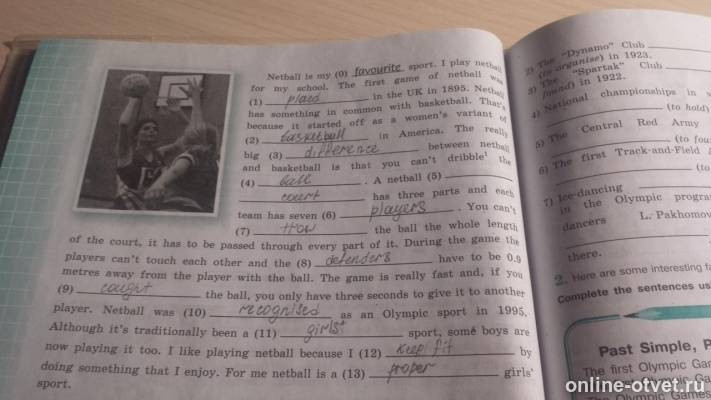 Netball is my (0) favourite sport. I play netball
for my school. The first game of netball was
(1) placed in the UK in 1895. Netball
has something in common with basketball. That's
because it started off as a women's variant of
(2) basketball in America. The really
big (3) difference between netball
and basketball is that you can't dribble¹ the
(4) ball . A netball (5)
court has three parts and each
team has seven (6) players . You can't
(7) the ball the whole length
of the court, it has to be passed through every part of it. During the game the
players can't touch each other and the (8) defenders have to be 0.9
metres away from the player with the ball. The game is really fast and, if you
(9) caught the ball, you only have three seconds to give it to another
player. Netball was (10) recognised as an Olympic sport in 1995.
Although it's traditionally been a (11) girls' sport, some boys are
now playing it too. I like playing netball because I (12) keep fit by
doing something that I enjoy. For me netball is a (13) proper girls'
sport.
2) The "Dynamo" Club
(to organise) in 1923.
3) The "Spartak" Club
in 1922.
4) National championships in
(to hold)
5) The Central Red Army
6) The first Track-and-Field
(to
7) Ice-dancing
in the Olympic
dancers L. Pakhomov
there.
2. Here are some interesting
Complete the sentences
Past Simple,
The first Olympic
Olympic Games
online-otvet.ru